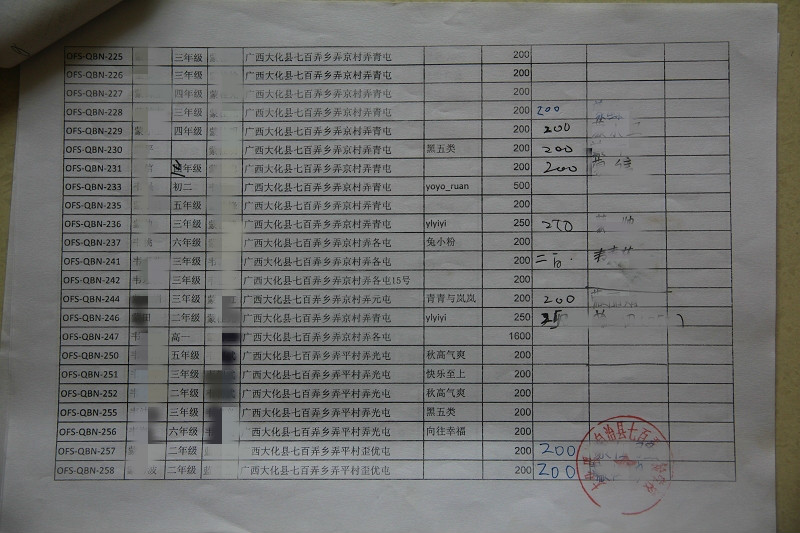 OFS-QBN-225 三年级 蒙 广西大化县七百弄乡弄京村弄青屯 200
OFS-QBN-226 三年级 广西大化县七百弄乡弄京村弄青屯 200
OFS-QBN-227 四年级 广西大化县七百弄乡弄京村弄青屯 200
OFS-QBN-228 三年级 广西大化县七百弄乡弄京村弄青屯 200 200
OFS-QBN-229 蒙 四年级 广西大化县七百弄乡弄京村弄青屯 200 200
OFS-QBN-230 广西大化县七百弄乡弄京村弄青屯 黑五类 200 200
OFS-QBN-231 年级 广西大化县七百弄乡弄京村弄青屯 200 200
OFS-QBN-233 初二 广西大化县七百弄乡弄京村弄青屯 yoyo_ruan 500
OFS-QBN-235 五年级 广西大化县七百弄乡弄京村弄青屯 200
OFS-QBN-236 三年级 广西大化县七百弄乡弄京村弄青屯 ylyiyi 250
OFS-QBN-237 六年级 广西大化县七百弄乡弄京村弄各屯 兔小粉 200
OFS-QBN-241 三年级 广西大化县七百弄乡弄京村弄各屯 200 二百
OFS-QBN-242 韦 三年级 广西大化县七百弄乡弄京村弄各屯15号 200
OFS-QBN-244 三年级 广西大化县七百弄乡弄京村弄元屯 青青与岚岚 200 200
OFS-QBN-246 二年级 广西大化县七百弄乡弄京村弄青屯 ylyiyi 250
OFS-QBN-247 韦 高一 广西大化县七百弄乡弄京村弄各屯 1600
OFS-QBN-250 五年级 广西大化县七百弄乡弄平村弄光屯 秋高气爽 200
OFS-QBN-251 三年级 广西大化县七百弄乡弄平村弄光屯 快乐至上 200
OFS-QBN-252 二年级 广西大化县七百弄乡弄平村弄光屯 秋高气爽 200
OFS-QBN-255 三年级 广西大化县七百弄乡弄平村弄光屯 黑五类 200
OFS-QBN-256 六年级 广西大化县七百弄乡弄平村弄光屯 向往幸福 200
OFS-QBN-257 二年级 西大化县七百弄乡弄平村歪优屯 200 200
OFS-QBN-258 二年级 西大化县七百弄乡弄平村歪优屯 200 200
自治县七百